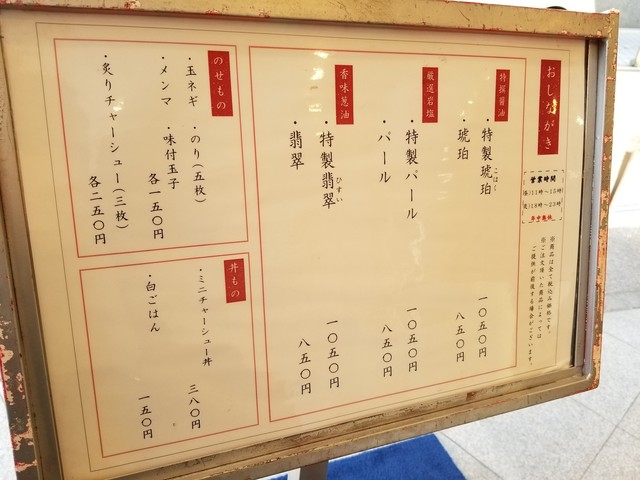 おしながき
営業時間
昼 11時～15時
夜 18時～23時
年中無休
※商品は全て税込み価格です。
※ご注文頂いた商品によっては
ご提供が前後する場合がございます。
特撰醤油
・特製琥珀 こはく 一〇五〇円
・琥珀 八五〇円
厳選岩塩
・特製パール 一〇五〇円
・パール 八五〇円
香味葱油
・特製翡翠 ひすい 一〇五〇円
・翡翠 八五〇円
のせもの
・玉ネギ ・のり(五枚)
・メンマ ・味付玉子
各一五〇円
・炙りチャーシュー(三枚)
各二五〇円
丼もの
・ミニチャーシュー丼 三八〇円
・白ごはん 一五〇円